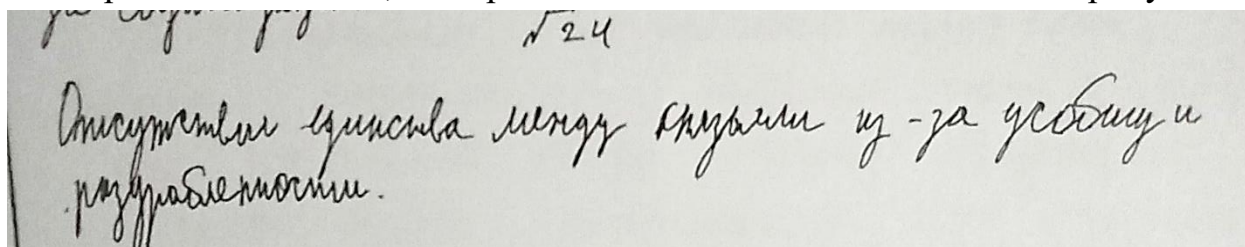 √24
Отсутствие единства между князьями из-за усобиц и
раздробленности.